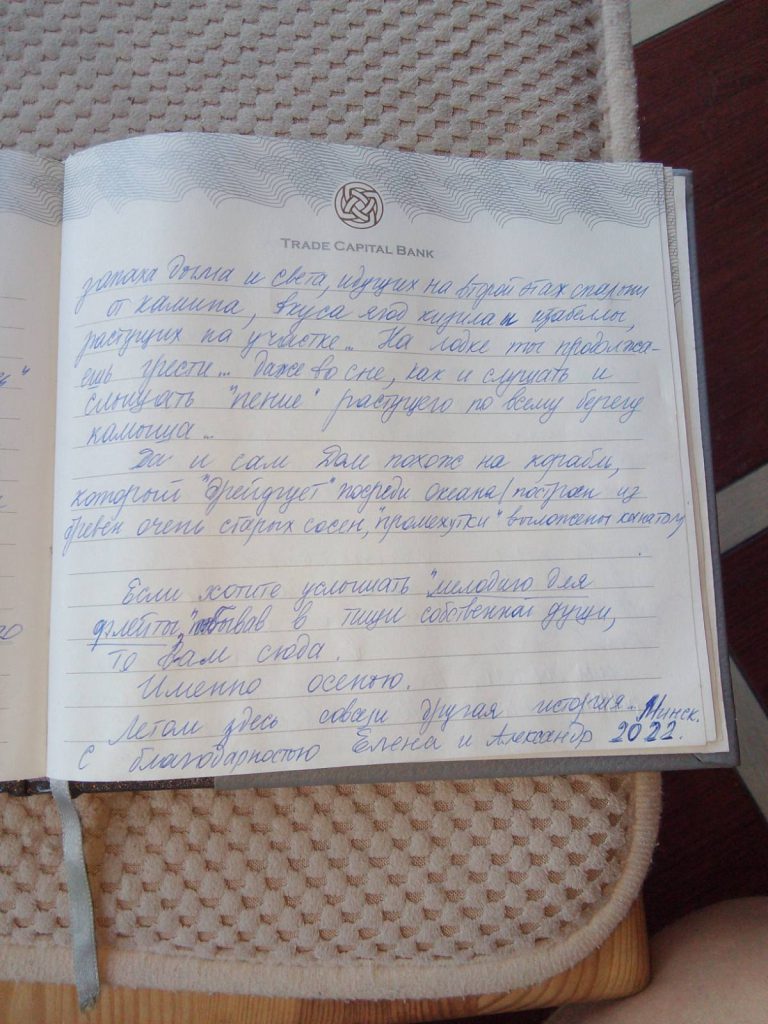 TRADE CAPITAL BANK
запаха дыма и света, идущих на второй этаж спальни
от камина, вкуса ягод кизила и изабеллы,
растущих на участке... На лодке ты продолжа-
ешь грести... Даже во сне, как и слушать и
слышать "пение" растущего по всему берегу
камыша...
Да и сам Дом похож на корабль,
который "дрейфует" посреди океана/построен из
брёвен очень старых сосен, "промежутки" выложены канатом/
.
Если хотите услышать "мелодию для
флейты", побывав в тиши собственной души,
то Вам сюда.
Именно осенью.
Летом здесь совсем другая история... Минск.
С благодарностью Елена и Александр 2022.